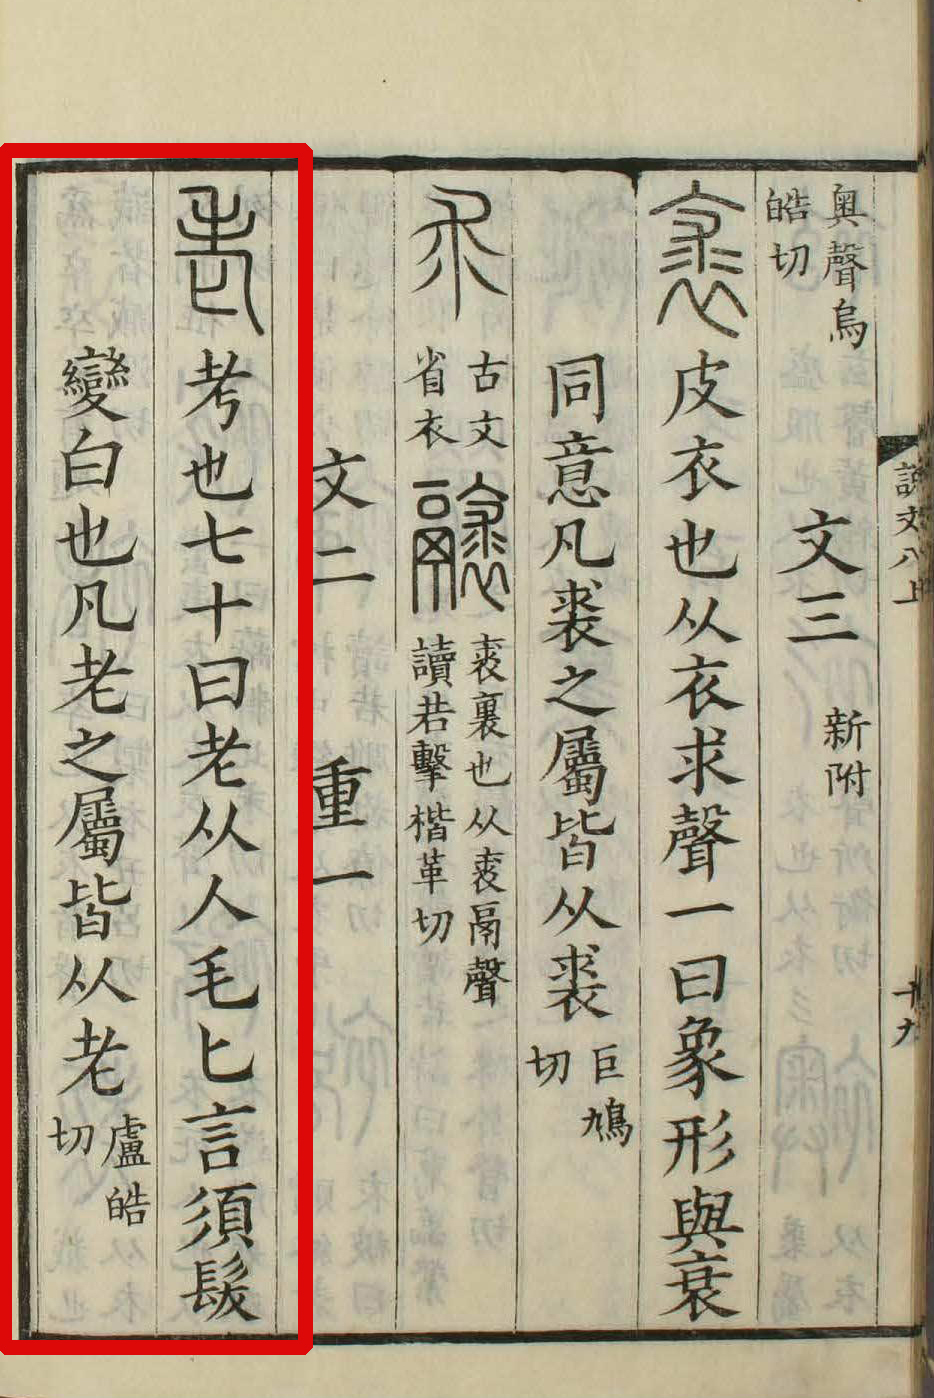 奥聲烏
皓切
文三 新附
裘 皮衣也从衣求聲一曰象形與衰
同意凡裘之屬皆从裘 巨鳩
切
求 古文
省衣
䙐 裘裏也从裘鬲聲
讀若擊楷革切
文二 重一
老 考也七十曰老从人毛匕言須髮
變白也凡老之屬皆从老 盧皓
切
說文八上 十九